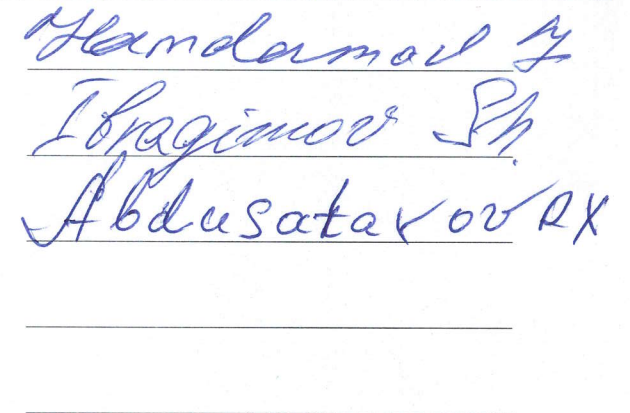 Hamdamov J
Ibragimov Sh.
Abdusatarov AX